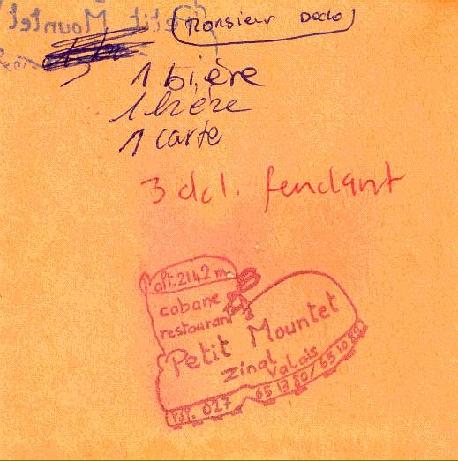 Petit Mountet
Monsieur Dodo
1 bière
1 bière
1 carte
3 dcl. fendant
alt. 2142 m
cabane
restaurant
Petit Mountet
Zinal
Valais
Tél. 027 65 13 80 / 65 10 82